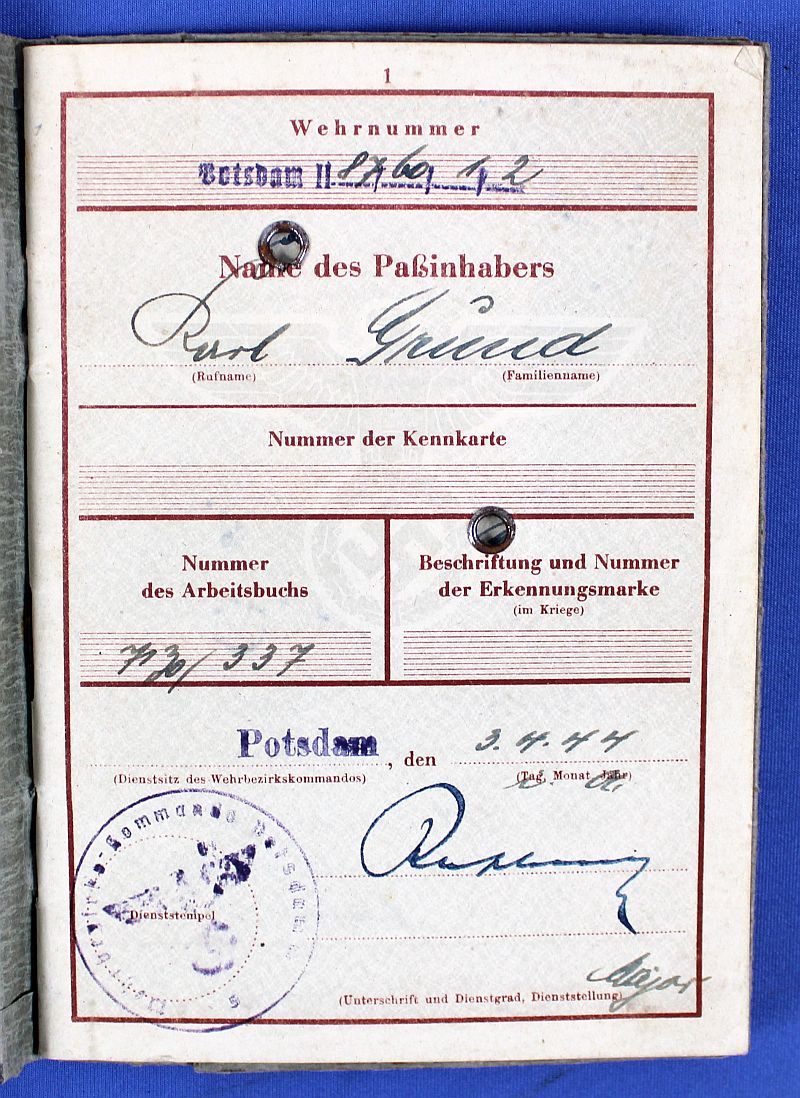 1
Wehrnummer
Potsdam II 87/60/1/2
Name des Paßinhabers
Karl Grund
(Rufname) (Familienname)
Nummer der Kennkarte
Nummer
des Arbeitsbuchs
Beschriftung und Nummer
der Erkennungsmarke
(im Kriege)
337
Potsdam, den 3.4.44
(Dienstsitz des Wehrbezirkskommandos) (Tag, Monat, Jahr)
Wehrbezirks-Kommando Potsdam
Dienststempel
Major
(Unterschrift und Dienstgrad, Dienststellung)